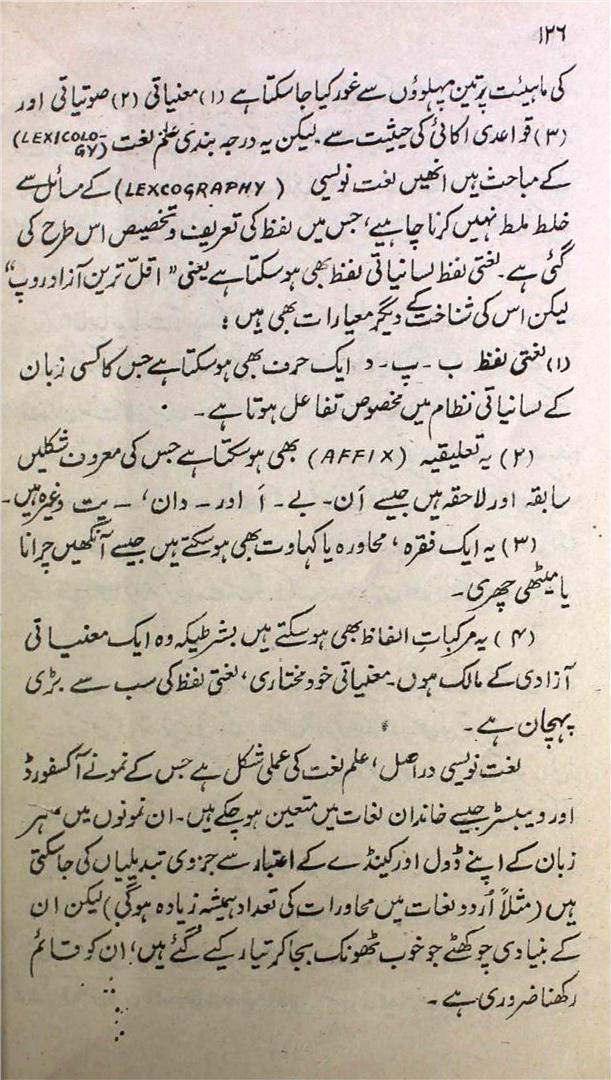 ۱۲۶
کی ماہیئت پر تین پہلوؤں سے غور کیا جا سکتا ہے (۱) معنیاتی (۲) صوتیاتی اور
(۳) قواعدی اکائی کی حیثیت سے۔ لیکن یہ درجہ بندی علم لغت (LEXICOLO-GY)
کے مباحث ہیں انھیں لغت نویسی (LEXCOGRAPHY) کے مسائل سے
خلط ملط نہیں کرنا چاہیے، جس میں لفظ کی تعریف و تخصیص اس طرح کی
گئی ہے۔ لغتی لفظ لسانیاتی لفظ بھی ہو سکتا ہے یعنی "اقلّ ترین آزاد روپ"
لیکن اس کی شناخت کے دیگر معیارات بھی ہیں :
(۱) لغتی لفظ ب ۔ پ ۔ د ایک حرف بھی ہو سکتا ہے جس کا کسی زبان
کے لسانیاتی نظام میں مخصوص تفاعل ہوتا ہے ۔
(۲) یہ تعلیقیہ (AFFIX) بھی ہو سکتا ہے جس کی معروف شکلیں
سابقہ اور لاحقہ ہیں جیسے اَن ۔ بے ۔ اَ اور ۔ دان، ۔ یت وغیرہ ہیں ۔
(۳) یہ ایک فقرہ، محاورہ یا کہاوت بھی ہو سکتے ہیں جیسے آنکھیں چرانا
یا میٹھی چھری ۔
(۴) یہ مرکبات الفاظ بھی ہو سکتے ہیں بشرطیکہ وہ ایک معنیاتی
آزادی کے مالک ہوں ۔ معنیاتی خود مختاری، لغتی لفظ کی سب سے بڑی
پہچان ہے ۔
لغت نویسی دراصل، علم لغت کی عملی شکل ہے جس کے نمونے آکسفورڈ
اور ویبسٹر جیسے خاندان لغات میں متعین ہو چکے ہیں ۔ ان نمونوں میں ہر
زبان کے اپنے ڈول اور کینڈے کے اعتبار سے جزوی تبدیلیاں کی جا سکتی
ہیں (مثلاً اُردو لغات میں محاورات کی تعداد ہمیشہ زیادہ ہوگی) لیکن ان
کے بنیادی چوکھٹے جو خوب ٹھونک بجا کر تیار کیے گئے ہیں، ان کو قائم
رکھنا ضروری ہے ۔